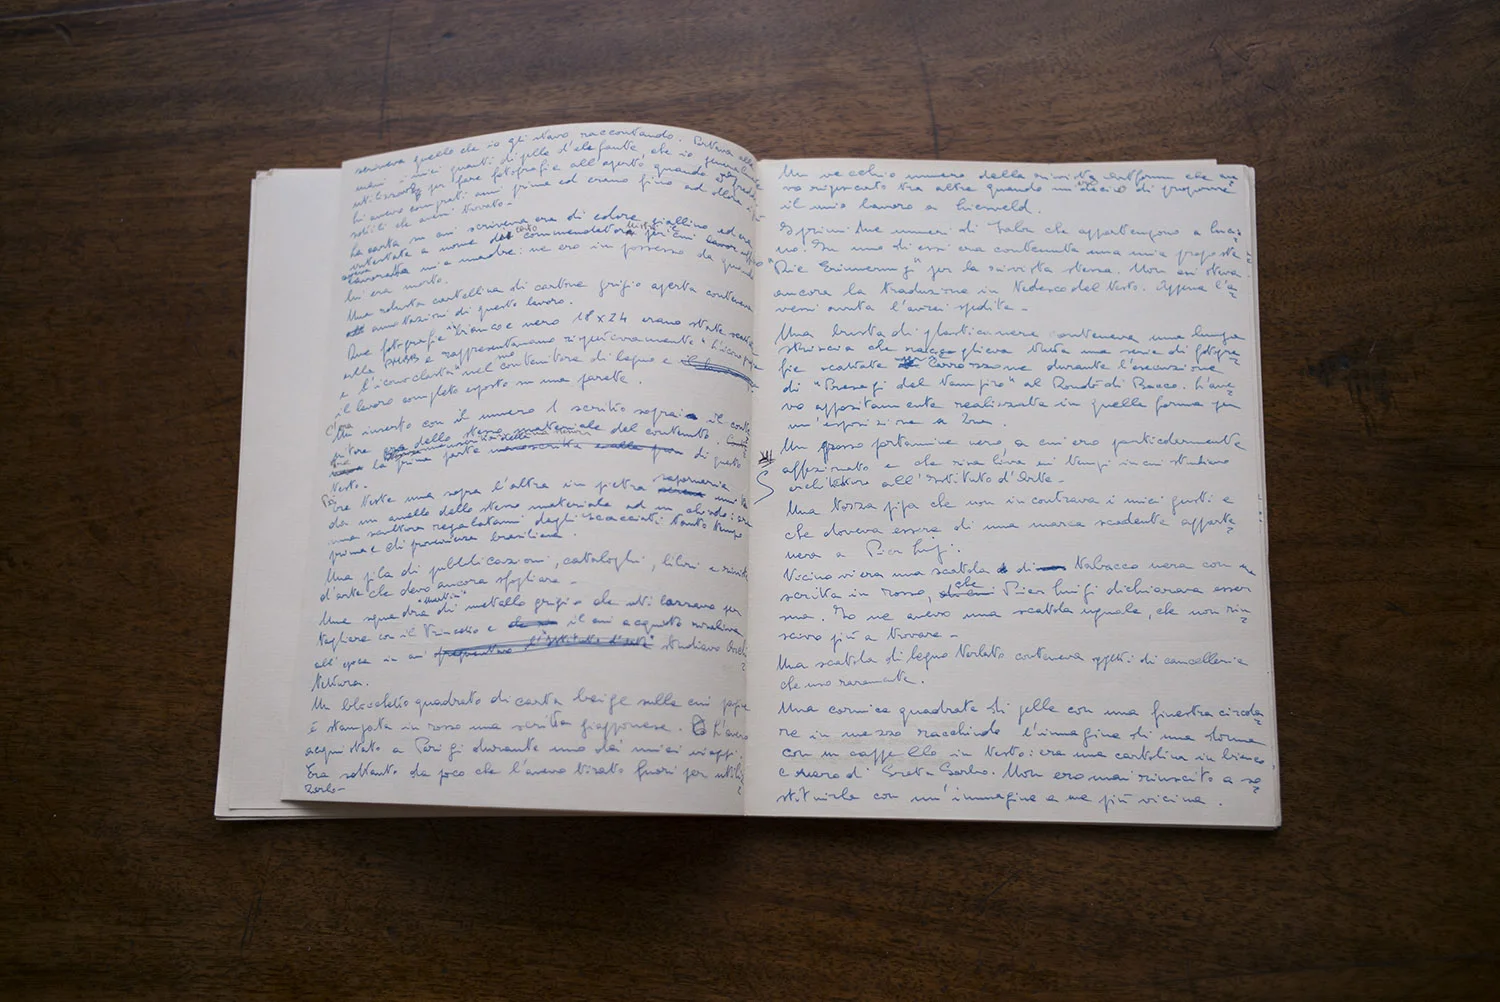 scriveva quello che io gli stavo raccontando. Portava alle
mani i miei guanti di pelle d'elefante, che io generalmente
utilizzavo per fare fotografie all'aperto quando
li avevo comprati anni prima ed erano fino ad allora i più
soliti che avevi trovato -
La carta su cui scriveva era di colore giallino ed era
intestata a nome del commendatore
lavorato mia madre: ne ero in possesso da quando
lui era morto.
Una robusta cartellina di cartone grigio aperta conteneva
annotazioni di questo lavoro.
Due fotografie bianco e nero 18 x 24 erano state
e rappresentavano rispettivamente "L'icono
e l'iconoclasta" nel contenitore di legno e
il lavoro completo esposto su una parete.
C'era
Un inserto con il numero 1 scritto sopra il conte
nitore era dello stesso materiale del contenuto.
la prima parte manoscritta di questo
testo.
teste una sopra l'altra in pietra saponaria unite
da un anello dello stesso materiale ad un chiodo: era
una scultura regalatami dagli Scacciati tanto tempo
prima e di provenienza brasiliana.
Una pila di pubblicazioni, cataloghi, libri e riviste
d'arte che devo ancora sfogliare -
Una squadra di metallo grigio che utilizzavo per
tagliare con il trincetto e il cui acquisto risaliva
all'epoca in cui frequentavo l'Istituto d'arte studiavo Archi
tettura.
Un blocchetto quadrato di carta beige sulle cui pagine
è stampata in rosso una scritta giapponese. L'avevo
acquistato a Parigi durante uno dei miei viaggi.
Era soltanto da poco che l'avevo tirato fuori per utiliz
zarlo -
Un vecchio numero della rivista Artforum che a
vo ripescato tra altre quando mi decisi di proporre
il mio lavoro a Lienveld.
I primi due numeri di Tabu che appartengono a Lucia
no. In uno di essi era contenuta una mia proposta
"Die Erinnerung" per la rivista stessa. Non avevo
ancora la traduzione in tedesco del testo. Appena l'a
vessi avuta l'avrei spedita -
Una busta di plastica nera conteneva una lunga
striscia che raccoglieva tutta una serie di fotogra
fie scattate durante l'esecuzione
di "Presagi del Vampiro" al Rondò di Bacco. L'ave
vo appositamente realizzata in quella forma per
un'esposizione a
Un grosso portamine nero a cui ero particolarmente
affezionato e che risaliva ai tempi in cui studiavo
architettura all'Istituto d'Arte -
Una tozza pipa che non incontrava i miei gusti e
che doveva essere di una marca scadente apparte
neva a Pier Luigi.
Vicino vi era una scatola di tabacco nera con una
scritta in rosso, che Pier Luigi dichiarava esser
sua. Io ne avevo una scatola uguale, che non riu
scivo più a trovare -
Una scatola di legno tarlato conteneva oggetti di cancelleria
che uso raramente.
Una cornice quadrata di pelle con una finestra circola
re in mezzo racchiude l'immagine di una donna
con un cappello in testa: era una cartolina in bianco
e nero di Greta Garbo. Non ero mai riuscito a so
stituirla con un'immagine a me più vicina.